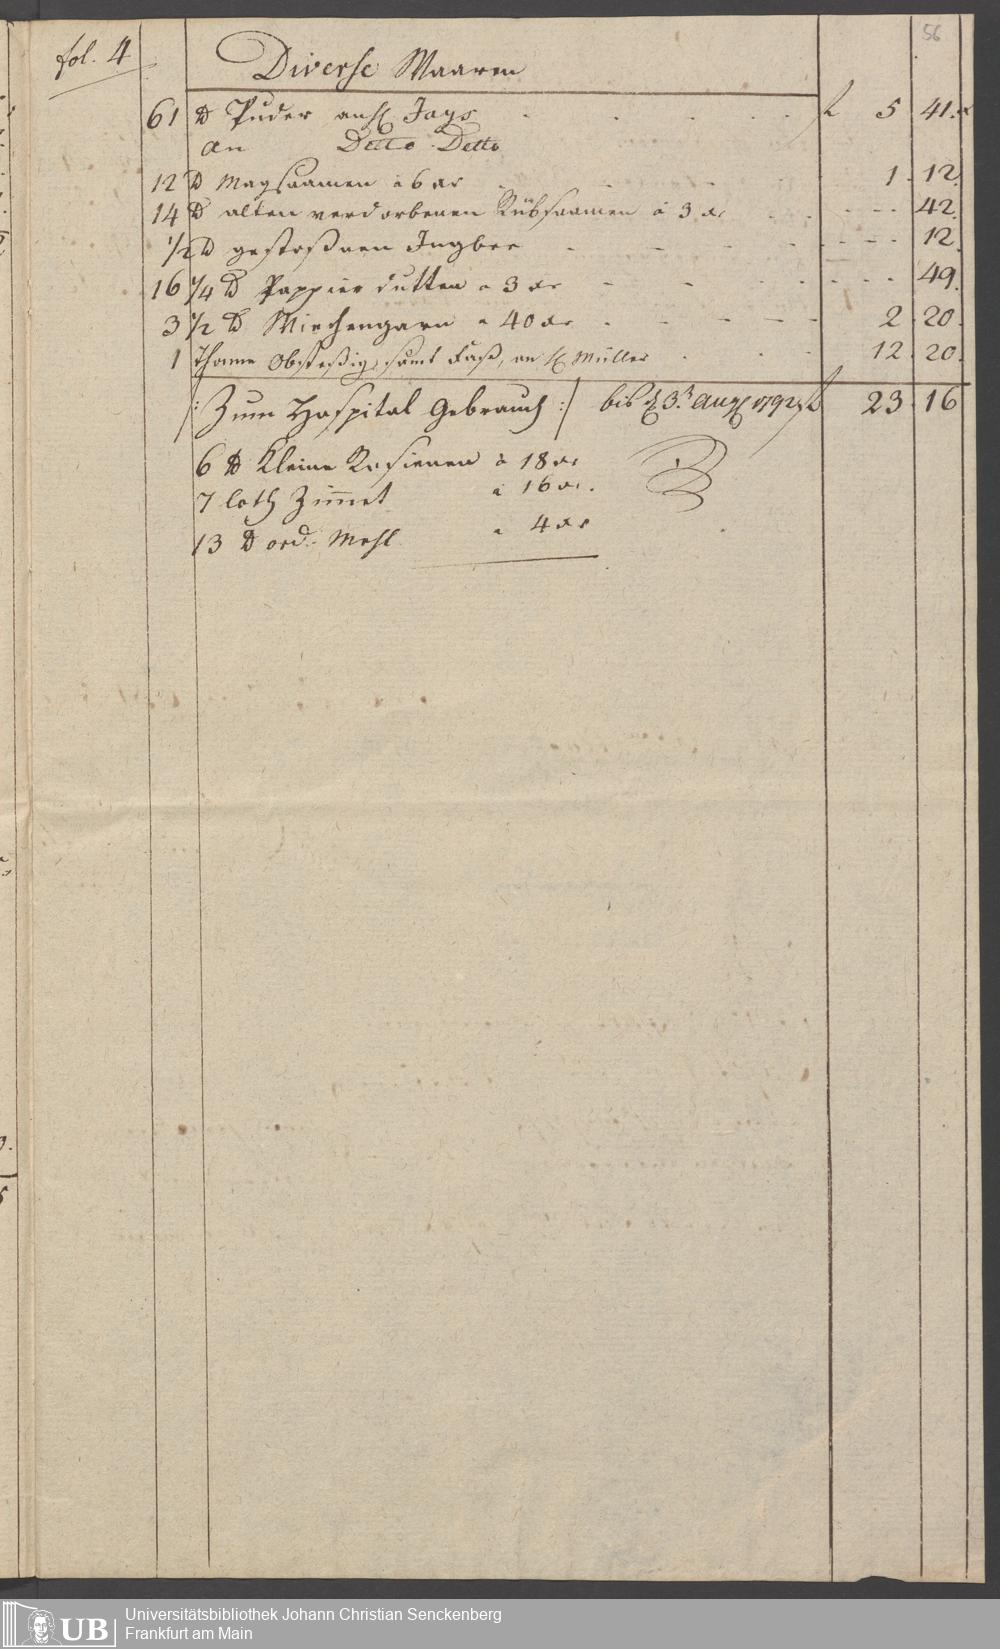 56
fol. 4
Diverse Waaren
61 ℔ Puder an H Jays f 5 41. x
an Detto Detto
12 ℔ Magsaamen à 6 xr 1. 12.
14 ℔ alten verdorbenen Rübsaamen à 3 xr 42.
1/2 ℔ gestoßnen Ingber 12.
16 1/4 ℔ Pappier dutten a 3 xr 49.
3 1/2 ℔ Wiechengarn a 40 xr 2. 20.
1 Thonne Obsteßig, samt Faß, an H Müller 12. 20.
/: Zum Hospital Gebrauch :/ bis d 3. Aug 1792 f 23. 16
6 ℔ Kleine Rosienen à 18 xr
7 loth Zimmet a 16 xr.
13 ℔ ord. Mehl a 4 xr
Universitätsbibliothek Johann Christian Senckenberg
Frankfurt am Main
UB